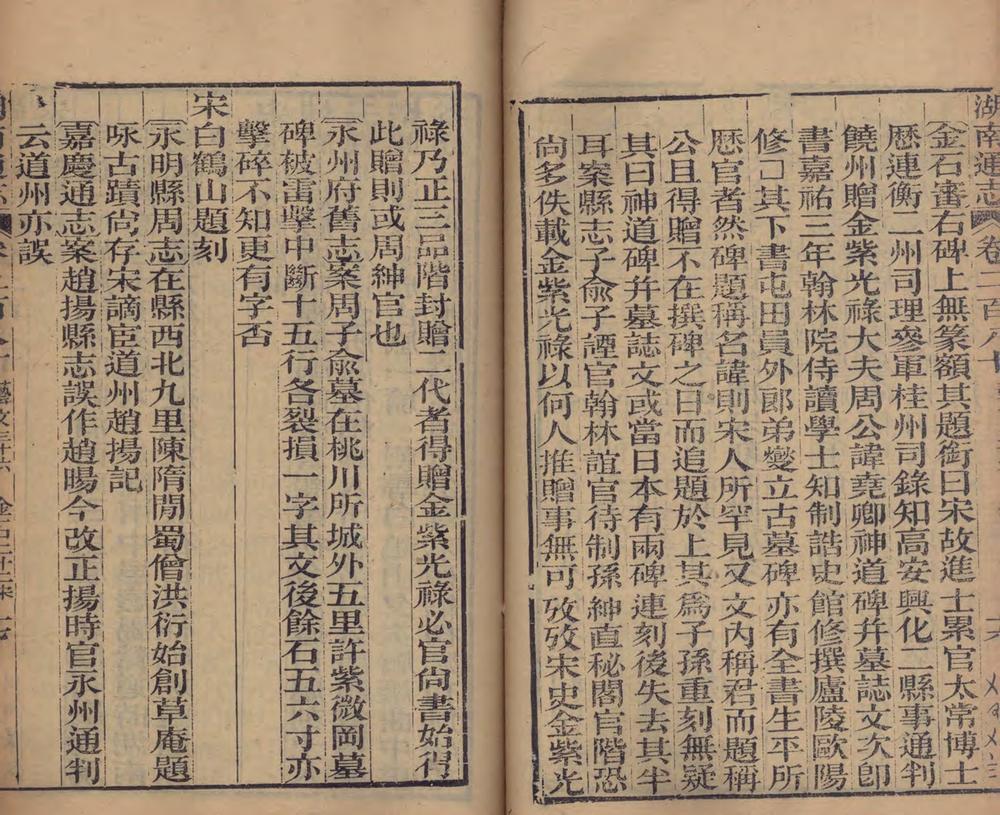 湖南通志 卷二百八十
金石審右碑上無篆額其題銜曰宋故進士累官太常博士
歷連衡二州司理參軍桂州司錄知高安興化二縣事通判
饒州贈金紫光祿大夫周公諱堯卿神道碑幷墓誌文次卽
書嘉祐三年翰林院侍讀學士知制誥史館修撰廬陵歐陽
修□其下書屯田員外郎弟燮立古墓碑亦有全書生平所
歷官者然碑題稱名諱則宋人所罕見又文內稱君而題稱
公且得贈不在撰碑之日而追題於上其爲子孫重刻無疑
其曰神道碑幷墓誌文或當日本有兩碑連刻後失去其半
耳案縣志子兪子諲官翰林誼官待制孫紳直秘閣官階恐
尙多佚載金紫光祿以何人推贈事無可攷攷宋史金紫光
祿乃正三品階封贈二代者得贈金紫光祿必官尙書始得
此贈則或周紳官也
永州府舊志案周子兪墓在桃川所城外五里許紫微岡墓
碑被雷擊中斷十五行各裂損一字其文後餘石五六寸亦
擊碎不知更有字否
宋白鶴山題刻
永明縣周志在縣西北九里陳隋閒蜀僧洪衍始創草庵題
咏古蹟尙存宋謫宦道州趙揚記
嘉慶通志案趙揚縣志誤作趙暘今改正揚時官永州通判
云道州亦誤